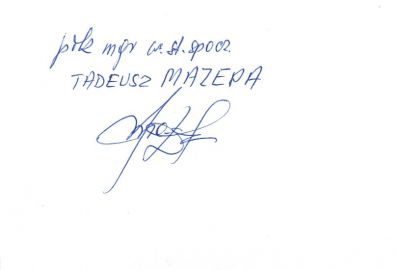 płk mgr w st. spocz.
TADEUSZ MAZEPA